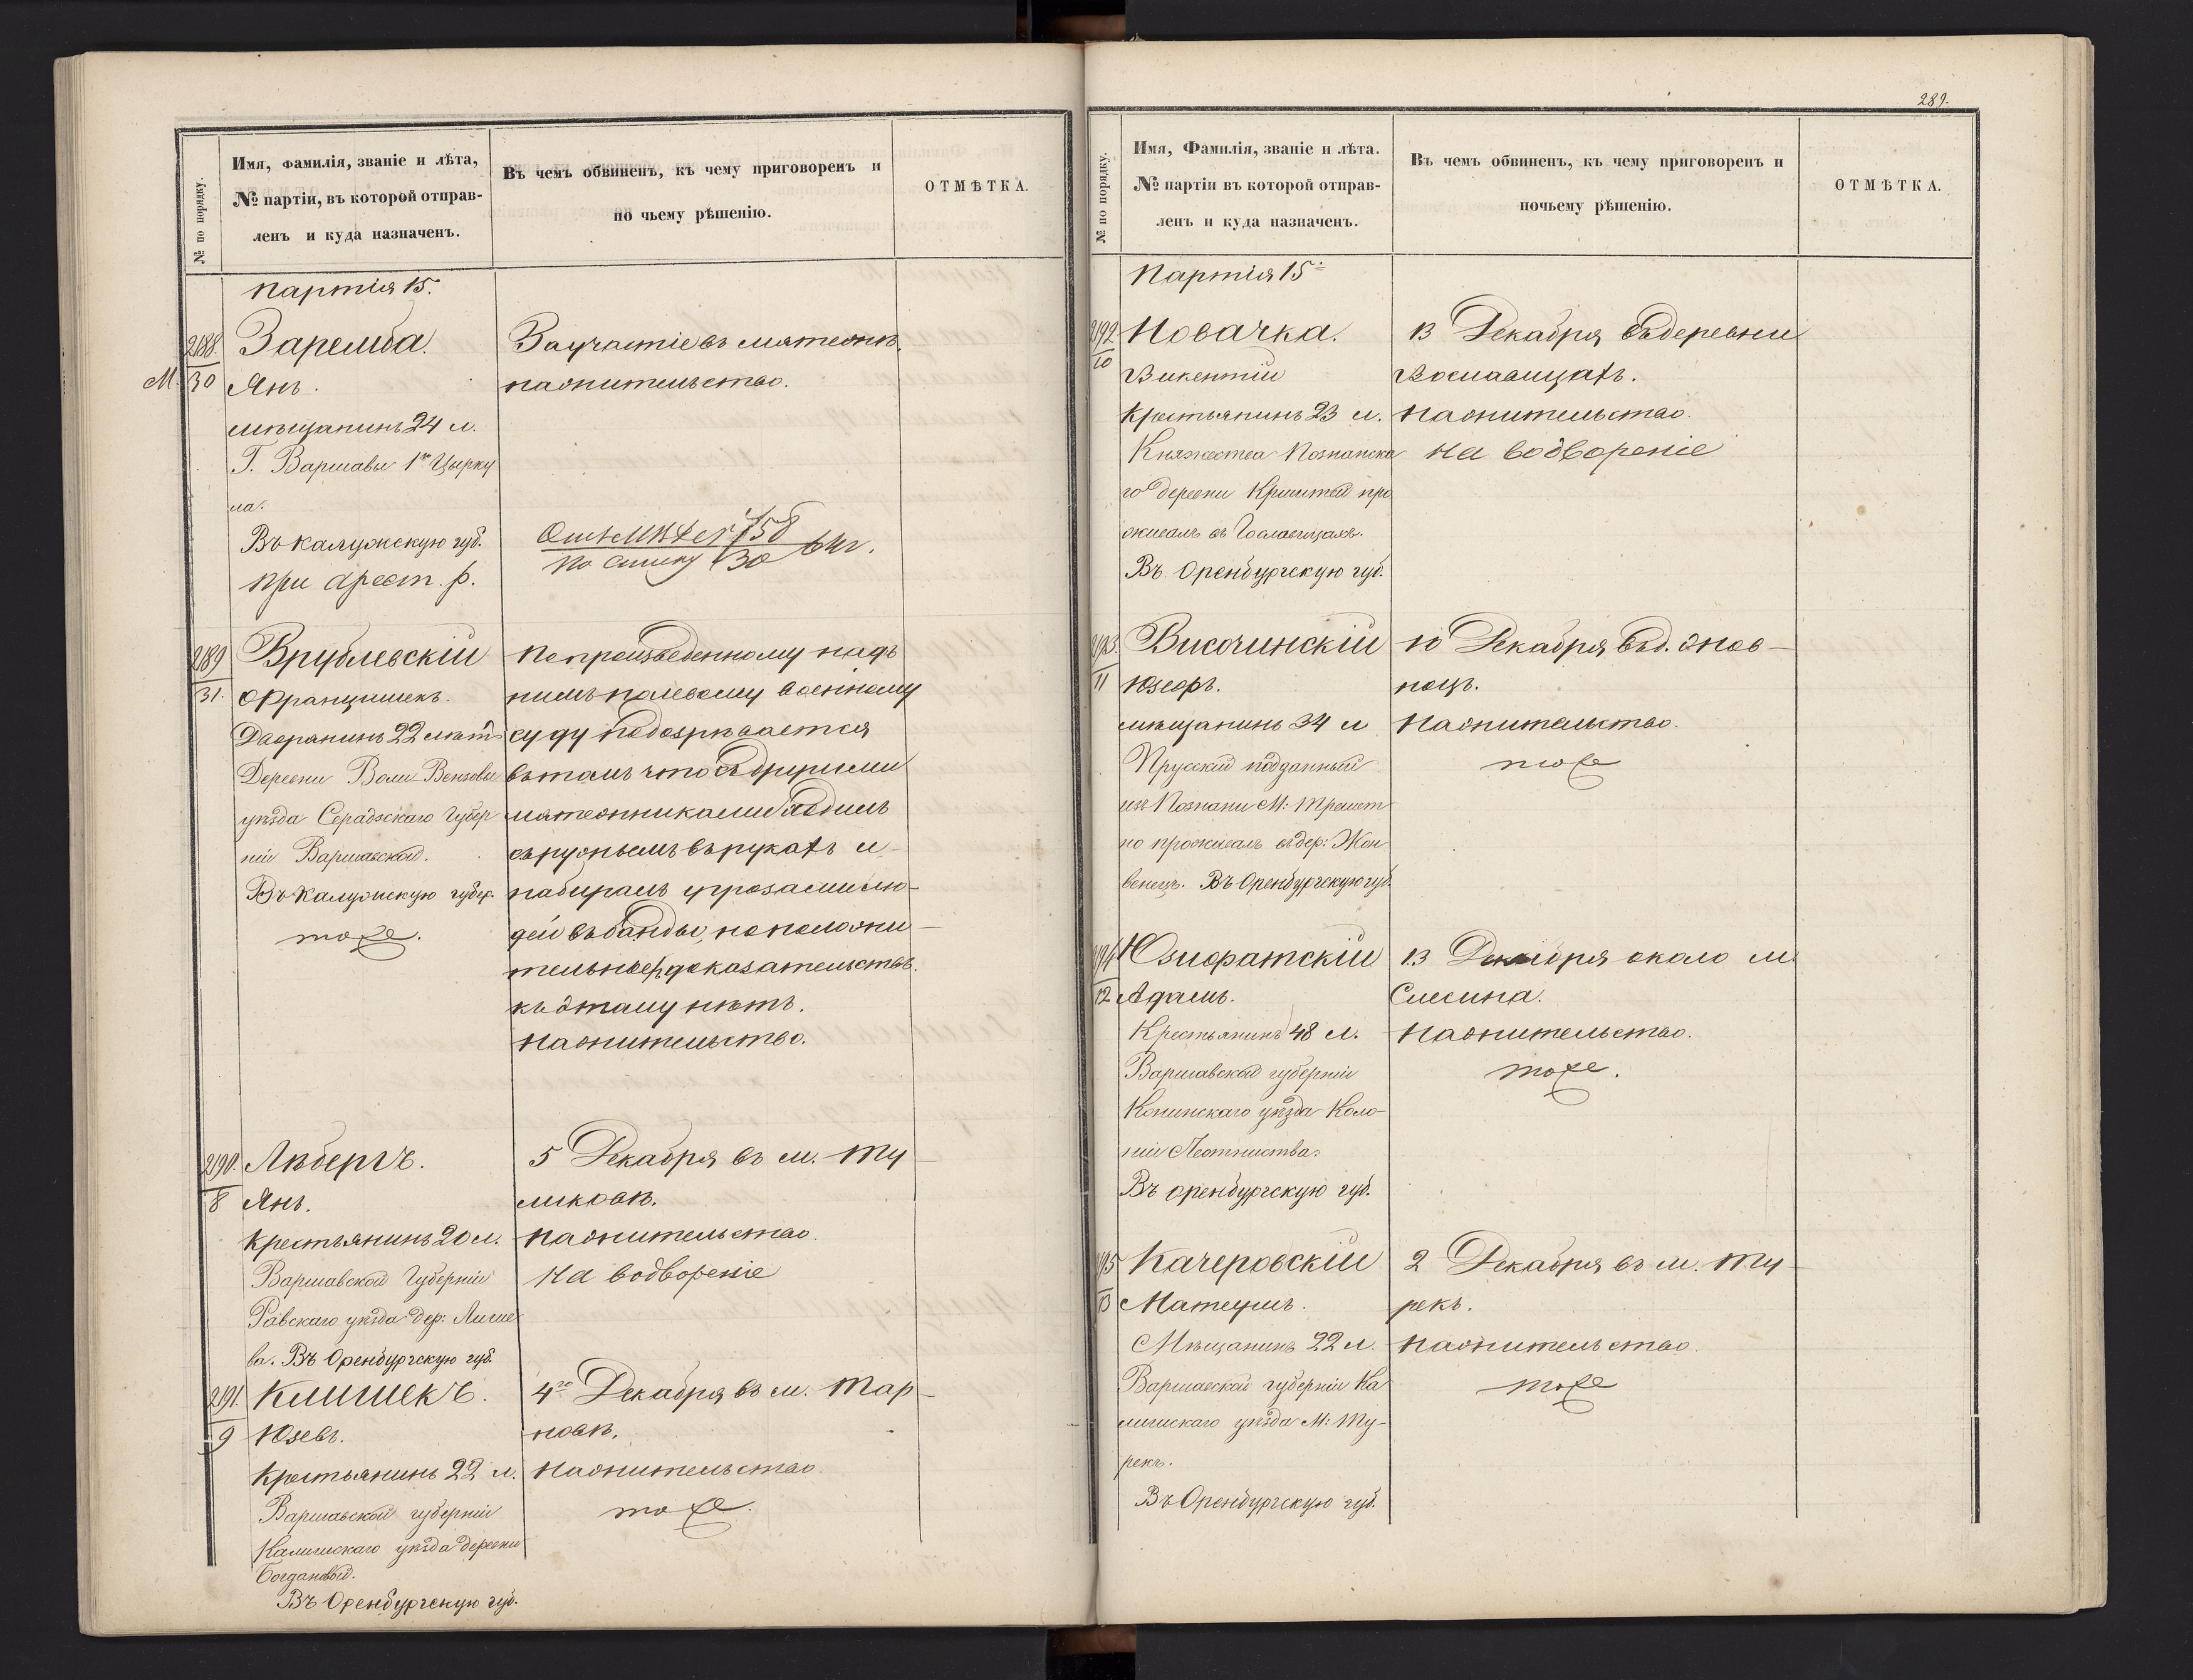 № по порядку.
Имя, Фамилія, званіе и лѣта,
№ партіи, въ которой отправ-
ленъ и куда назначенъ.
Въ чемъ обвиненъ, къ чему приговоренъ и
по чьему рѣшенію.
ОТМѢТКА.
Партія 15.
2188.
М. 30
Заремба.
Янъ.
мѣщанинъ 24 л.
Г. Варшавы 1го Цырку
ла.
Въ калужскую губ.
при арест. р.
За участіе въ мятежѣ.
на жительство.
по списку 30
2189
31.
Врублевскій
Францишекъ.
Дворянинъ 22 лѣтъ
Деревни Воли Вензовы
уѣзда Серадзскаго Губер
ніи Варшавской.
Въ Калужскую губер.
тоже.
По произведенному надъ
нимъ полевому военному
суду подозрѣвается
въ томъ что съ другими
мятежниками ѣздилъ
съ ружьемъ въ рукахъ и
набиралъ угрозами лю-
дей въ банды, но положи-
тельныхъ доказательствъ.
къ этому нѣтъ.
На жительство.
2190.
8
Лѣбергъ.
Янъ.
Крестьянинъ 20 л.
Варшавской Губерніи
Равскаго уѣзда дер: Лише
ва. Въ Оренбургскую губ.
5 Декабря въ м. Ту-
шковѣ.
На жительство.
На водвореніе
2191.
9
Климекъ.
Юзевъ.
Крестьянинъ 22 л.
Варшавской губерніи
Калишскаго уѣзда деревни
Богдановой.
Въ Оренбургскую губ.
4го Декабря въ м. Тар-
новѣ.
На жительство.
тоже.
289.
№ по порядку.
Имя, Фамилія, званіе и лѣта.
№ партіи въ которой отправ-
ленъ и куда назначенъ.
Въ чемъ обвиненъ, къ чему приговоренъ и
почьему рѣшенію.
ОТМѢТКА.
Партія 15
2192
10
Новачка.
Викентій
Крестьянинъ 23 л.
Княжества Познанска
го деревни проживалъ въ
Въ Оренбургскую губ.
13 Декабря въ деревни
На жительство.
На водвореніе
2193.
11
Височинскій
Юзефъ.
мѣщанинъ 34 л
Прусскій подданный
изъ Познани М: Тремеш
но проживалъ въ дер:
Въ Оренбургскую губ.
10 Декабря въ д. Янов-
нецъ.
На жительство.
тоже
2194
12
Юзиоратскій
Адамъ.
Крестьянинъ 48 л.
Варшавской губерніи
Конинскаго уѣзда Коло-
ніи
Въ оренбургскую губ.
13 Декабря около м.
Слесина.
На жительство.
тоже.
2195
13
Качеровскій
Матеушъ.
Мѣщанинъ 22 л.
Варшавской губерніи Ка
лишскаго уѣзда М: Ту-
рекъ.
Въ Оренбургскую губ.
2 Декабря въ м. Ту-
рекъ.
На жительство.
тоже